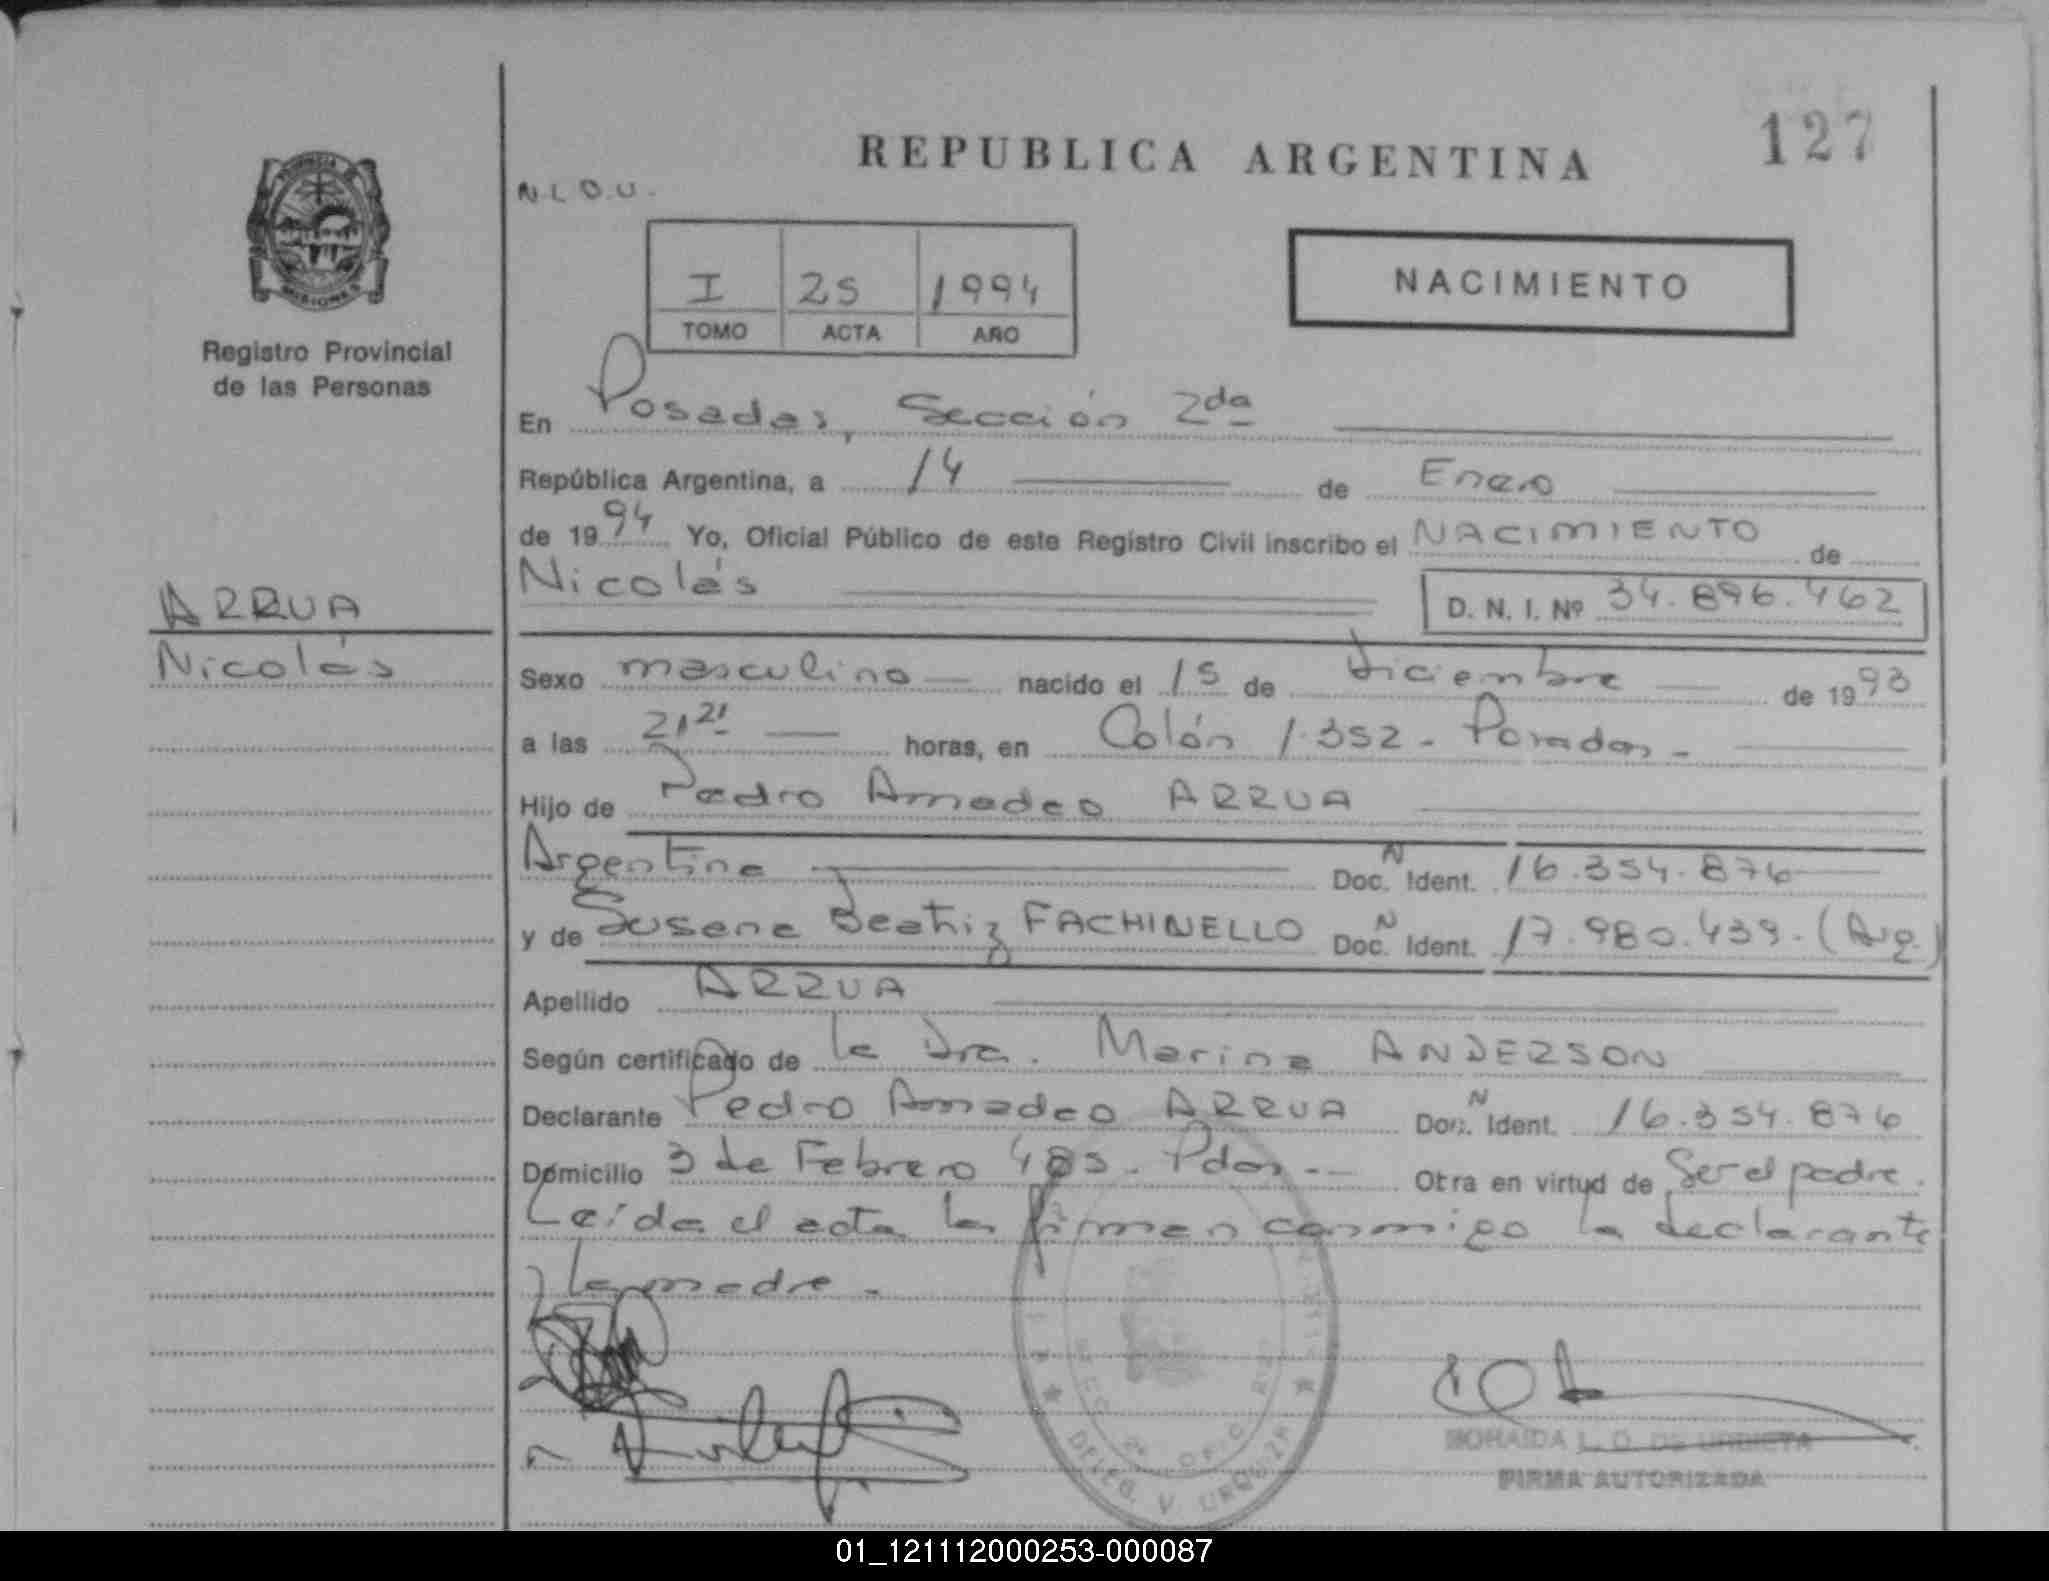 REPUBLICA ARGENTINA
127
N.L.O.U.
PROVINCIA DE
MISIONES
Registro Provincial
de las Personas
I 25 1994
TOMO ACTA AÑO
NACIMIENTO
En Posadas, Sección 2da
República Argentina, a 14 de Enero
de 1994 Yo, Oficial Público de este Registro Civil inscribo el NACIMIENTO de
Nicolás D. N. I. Nº 34.896.462
ARRUA
Nicolás
Sexo masculino nacido el 15 de diciembre de 1993
a las 21,21 horas, en Colón 1.352 - Posadas -
Hijo de Pedro Amadeo ARRUA
Argentina Doc. N Ident. 16.354.876
y de Susana Beatriz FACHINELLO Doc. N Ident. 17.980.439. (Arg.)
Apellido ARRUA
Según certificado de la Dra. Marina ANDERSON
Declarante Pedro Amadeo ARRUA Doc. N Ident. 16.354.876
Domicilio 3 de Febrero 485. Pdas -- Otra en virtud de Ser el padre.
Leída el acta la firman conmigo la declarante
y la madre -
DELEG. V. URQUIZA
L. O. DE URBIETA
FIRMA AUTORIZADA
01_121112000253-000087